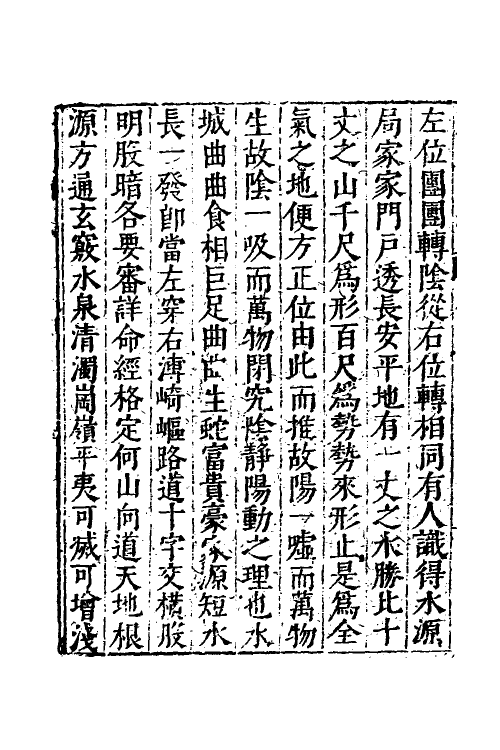 左位團團轉陰從右位轉相同有人識得水源
局家家門戶透長安平地有一丈之水勝比十
丈之山千尺爲形百尺爲勢勢來形止是爲全
氣之地便方正位由此而推故陽一噓而萬物
生故陰一吸而萬物閉究陰靜陽動之理也水
城曲曲食相巨足曲曲生蛇富貴豪家源短水
長一發卽當左穿右漙崎嶇路道十字交橫股
明股暗各要審詳命經格定何山向道天地根
源方通玄竅水泉清濁崗嶺平夷可滅可增淺